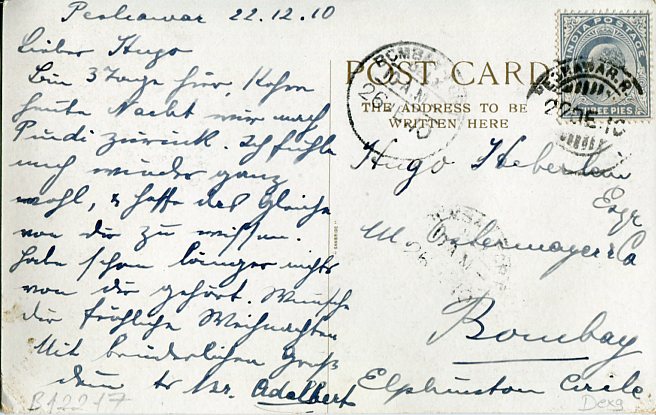 Peshawar 22.12.10
Lieber Hugo
Bin 3 Tage hier, Kehre
heute Nacht wieder nach
Pindi zurück. Ich fühle
mich wieder ganz
wohl, & hoffe das Gleiche
von dir zu wissen.
Habe schon länger nichts
von dir gehört. Wünsche
dir fröhliche Weihnachten
Mit brüderlichem Gruß
dein tr Br. Adalbert
B12217
POST CARD
THE ADDRESS TO BE
WRITTEN HERE
INDIA POSTAGE
THREE PIES
BOMBAY
PESHAWAR.R
22 DE 10
Hugo Heberlein
Esqr
Ostermayer & Co
Bombay
Elphinston Circle
Dexg